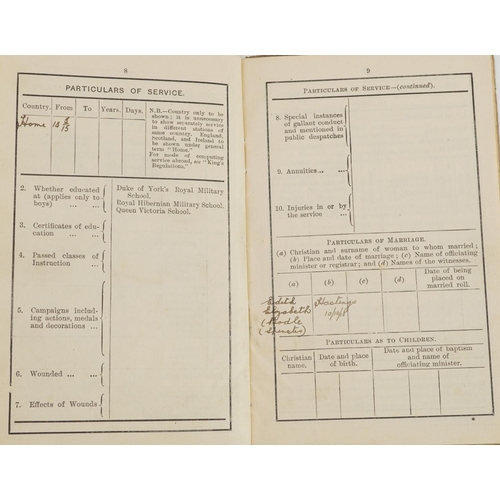 8
PARTICULARS OF SERVICE.
Country. From To Years. Days.
N.B.—Country only to be
shown; it is unnecessary
to show separately service
in different stations of
same country. England,
Scotland, and Ireland to
be shown under general
term "Home."
For mode of computing
service abroad, see "King's
Regulations."
Home
2. Whether educated
at (applies only to
boys) ... ...
Duke of York's Royal Military
School.
Royal Hibernian Military School.
Queen Victoria School.
3. Certificates of edu-
cation ... ...
4. Passed classes of
Instruction ...
5. Campaigns includ-
ing actions, medals
and decorations ...
6. Wounded ... ...
7. Effects of Wounds
9
PARTICULARS OF SERVICE—(continued).
8. Special instances
of gallant conduct
and mentioned in
public despatches
9. Annuities .. ...
10. Injuries in or by
the service ...
PARTICULARS OF MARRIAGE.
(a) Christian and surname of woman to whom married;
(b) Place and date of marriage; (c) Name of officiating
minister or registrar; and (d) Names of the witnesses.
(a) (b) (c) (d) Date of being
placed on
married roll.
Edith Hastings
Elizabeth
(Spinster)
PARTICULARS AS TO CHILDREN.
Christian
name.
Date and place
of birth.
Date and place of baptism
and name of
officiating minister.